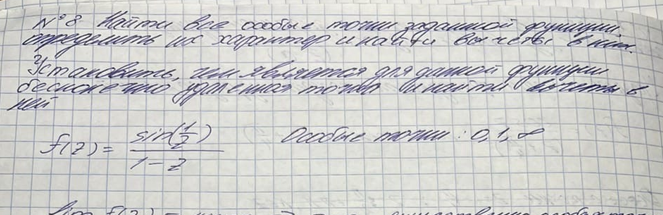 №8 Найти все особые точки заданной функции,
определить их характер и найти вычеты в них.
Установить, чем является для данной функции
бесконечно удаленная точка и найти вычеты в
ней
f(z) = sin(1/z) / (1-z) Особые точки: 0, 1, ∞